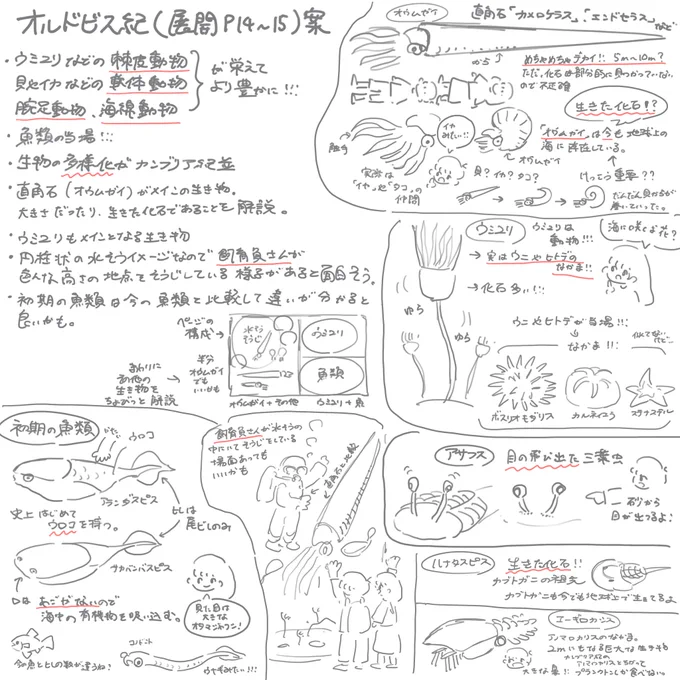 オルドビス紀(展開P14〜15)案
・ウミユリなどの棘皮動物
貝やイカなどの軟体動物
腕足動物、海綿動物
が栄えて
より豊かに!!!
・魚類の登場!!!
・生物の多様化がカンブリア紀並
・直角石(オウムガイ)がメインの生き物。
大きさだったり、生きた化石であることを解説。
・ウミユリもメインとなる生き物
・円柱状の水そうイメージなので飼育員さんが
色んな高さの地点でそうじしている様子があると面白そう。
・初期の魚類は今の魚類と比較して違いが分かると
良いかも。
ページの
構成→
水そう
そうじ
ウミユリ
魚類
半分
オウムガイ
でも
いいかも
オウムガイ+その他
ウミユリ+魚
おわりに
お他の
生き物を
ちょびっと解説
オウムガイ
直角石「カメロケラス」、「エンドセラス」など
から
めちゃめちゃデカイ!! 5m〜10m?
ただ、化石は部分的に見つかっていない
ので不正確
生きた化石!?
「オウムガイ」は今も地球上の
海に存在している。
触手
イカ
みたい!!
オウムガイ
実際は
「イカ」や「タコ」の
仲間
貝?イカ?タコ?
けっこう重要??
だんだん貝からが
巻いていった。
ウミユリ
ウミユリは
動物!!!
海に咲くお花?
→実はウニやヒトデの
なかま!!
→化石多い!!!
ゆら
ゆら
ウニやヒトデが登場!!!
なかま!!!
似てない
けど…
ボスリオキダリス
カルネイユラ
ステナステル
アサフス
目の飛び出た三葉虫
砂から
目が出てるよ!
ルナタスピス
生きた化石!!
カブトガニの祖先
カブトガニも今でも地球上で生きてるよ
エーギロカシス
アノマロカリスのなかま。
2mにもなる巨大な生き物
カンブリア紀の
アノマロカリスとちがって
大きな巣!!プランクトンしか食べないっ
初期の魚類
かたい
ウロコ
アランダスピス
史上はじめて
ウロコを持つ。
ヒレは
尾ビレのみ
サカバンバスピス
口はあごがないので
海中の有機物を吸い込む。
見た目は
大きな
オタマジャクシ!
今の魚とヒレの数が違うね!
コノドント
ウナギみたい!!!
飼育員さんが水そうの
中にいてそうじをしている
場面あっても
いいかも
直角石と比較